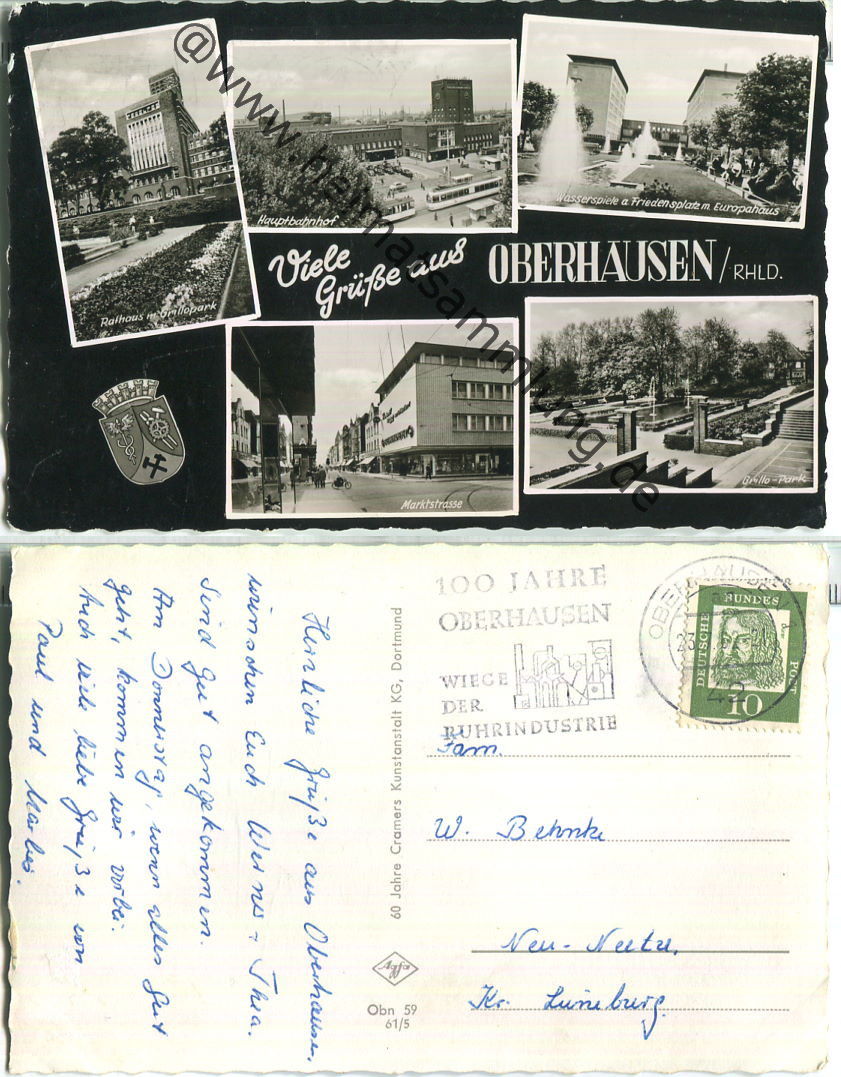 @www.heimatsammlung.de
Rathaus m. Grillopark
Hauptbahnhof
Wasserspiele a. Friedensplatz m. Europahaus
Viele
Grüße aus
OBERHAUSEN/RHLD.
Marktstrasse
Grillo-Park
100 JAHRE
OBERHAUSEN
WIEGE
DER
RUHRINDUSTRIE
OBERHAUSEN
DEUTSCHE
BUNDES
POST
10
Herzliche Grüße aus Oberhausen,
wünschen Euch Werner + Thea.
Sind gut angekommen.
Am Donnerstag, wenn alles gut
geht, kommen wir vorbei.
Auch viele liebe Grüße von
Paul und
60 Jahre Cramers Kunstanstalt KG, Dortmund
Agfa
Obn 59
61/5
Fam.
W. Behnke
Neu-Neetze,
Kr. Lüneburg.